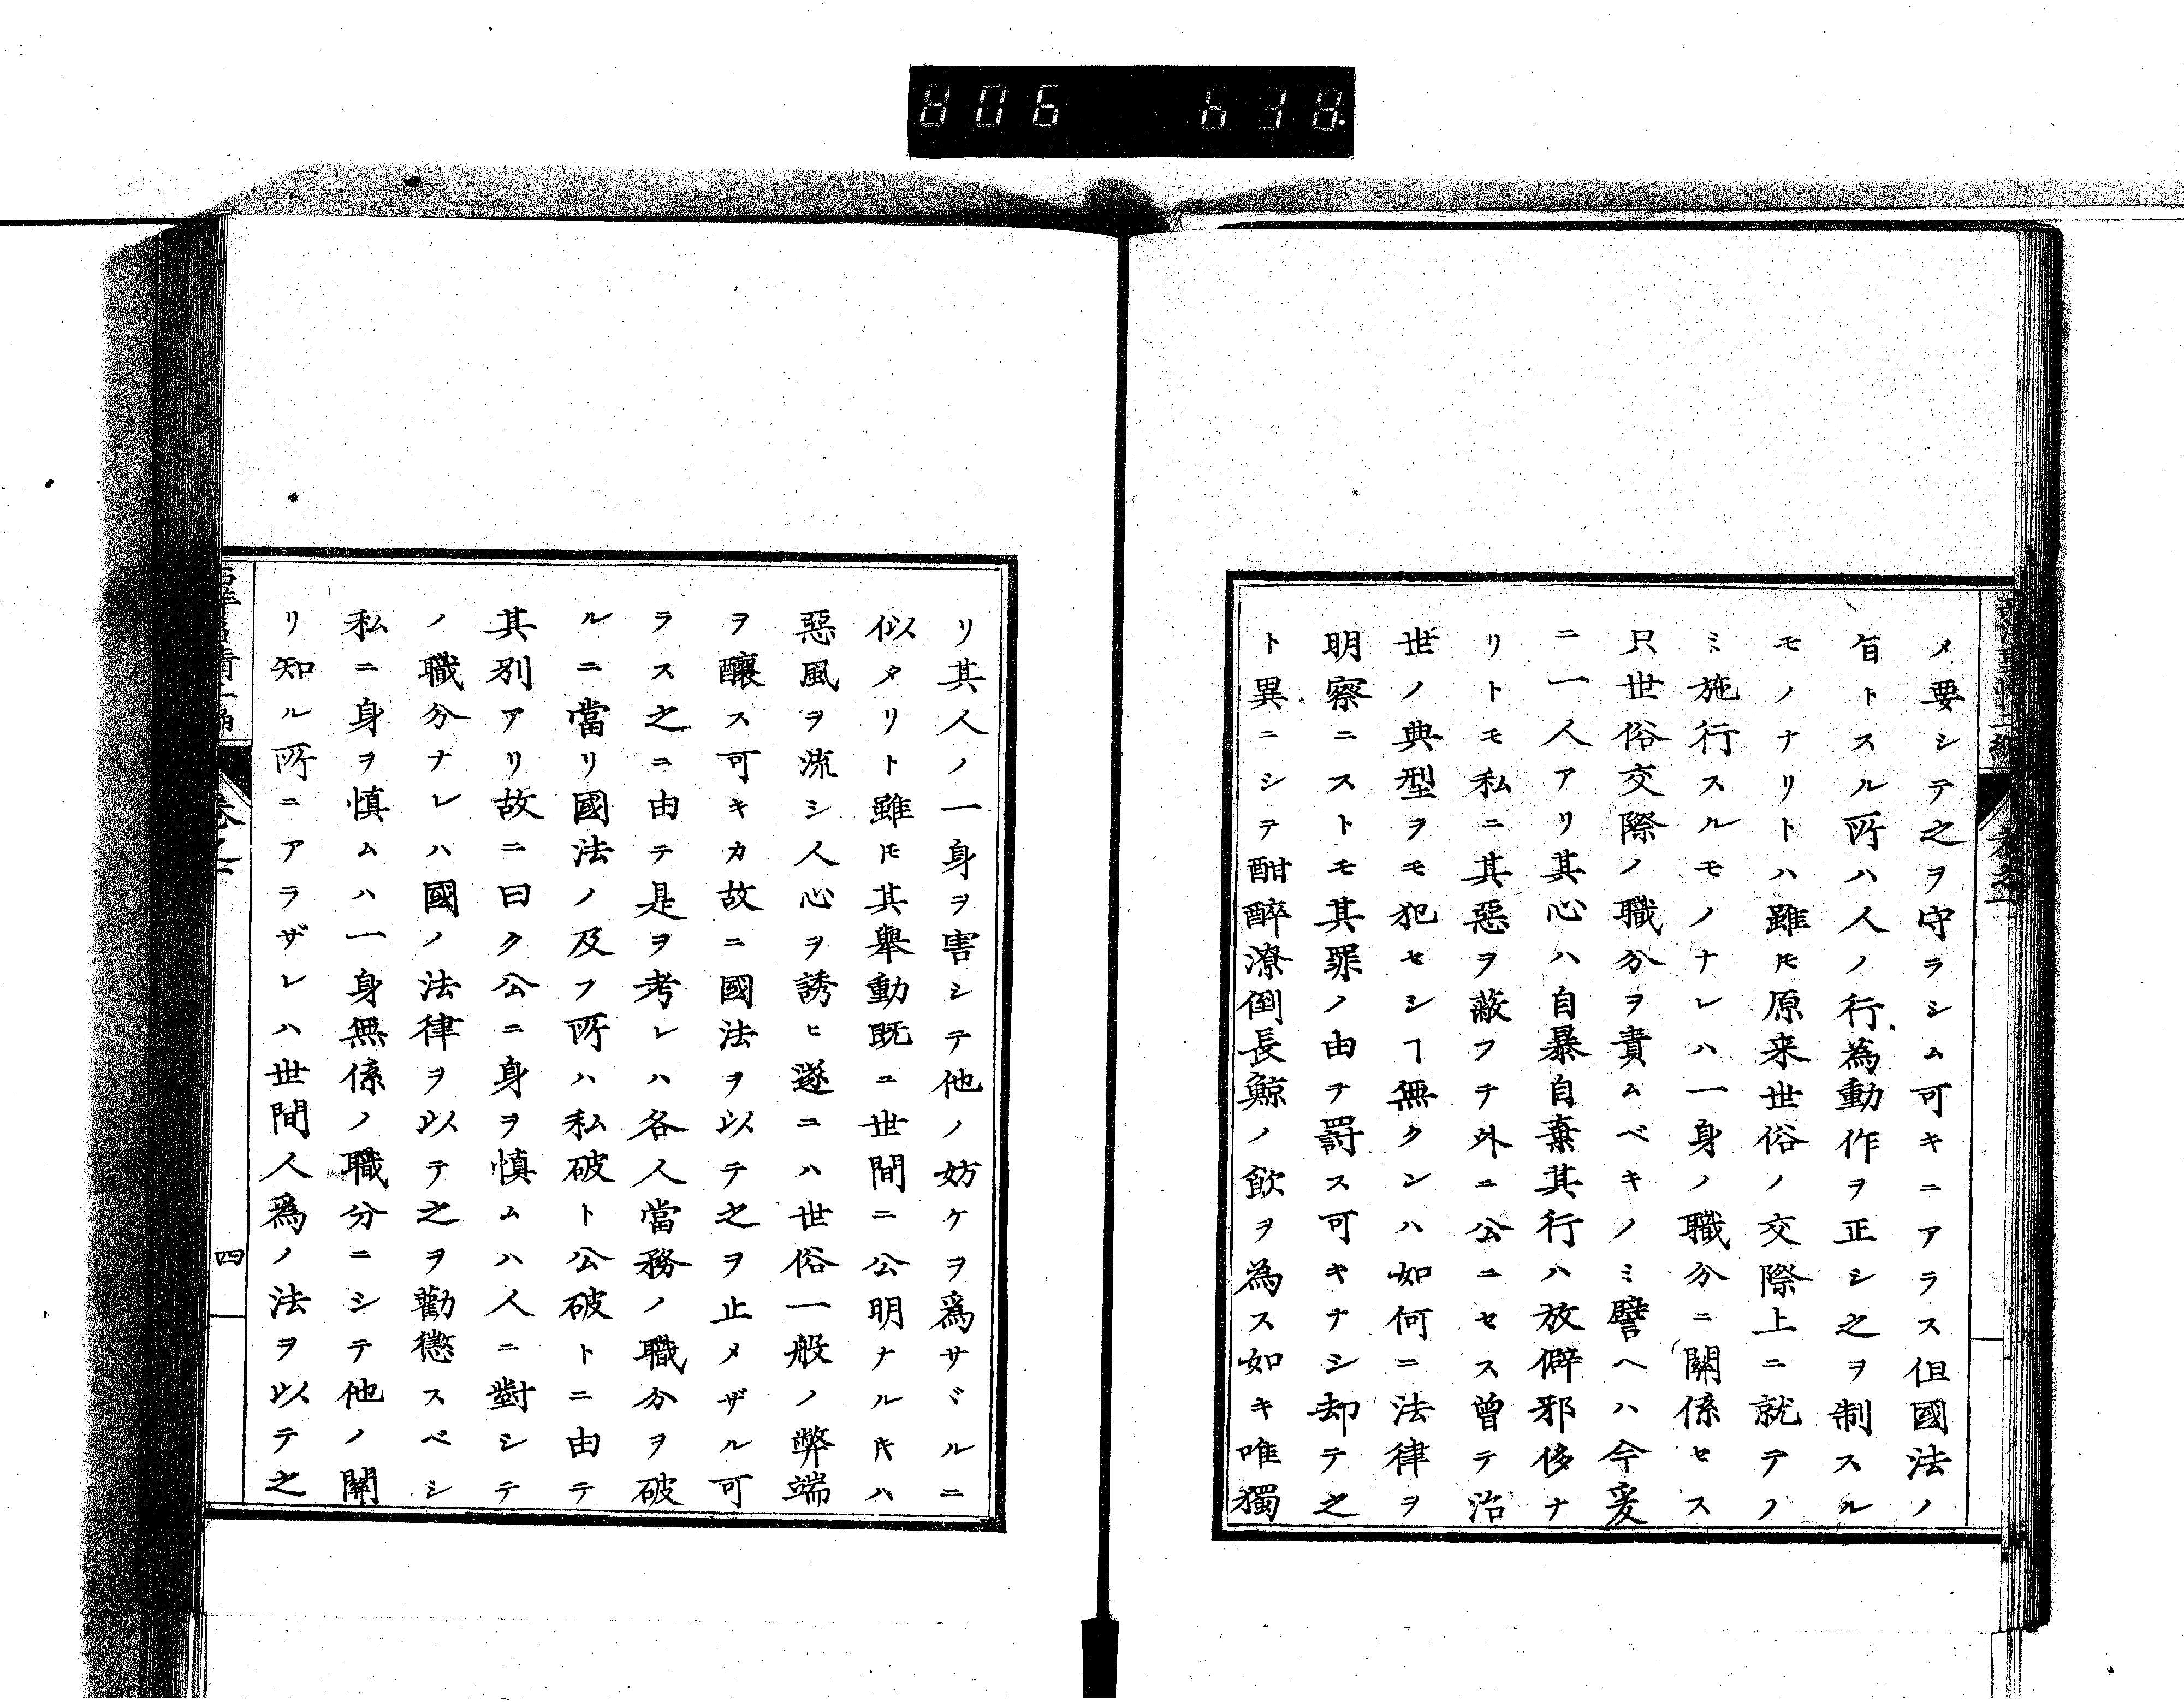 メ要シテ之ヲ守ラシム可キニアラス但國法ノ
旨トスル所ハ人ノ行為動作ヲ正シ之ヲ制スル
モノナリトハ雖𪜈原来世俗ノ交際上ニ就テノ
ミ施行スルモノナレハ一身ノ職分ニ關係セス
只世俗交際ノ職分ヲ責ムベキノミ譬ヘハ今爰
ニ一人アリ其心ハ自暴自棄其行ハ放僻邪侈ナ
リトモ私ニ其惡ヲ蔽フテ外ニ公ニセス曾テ治
世ノ典型ヲモ犯セシヿ無クンハ如何ニ法律ヲ
明察ニストモ其罪ノ由テ罸ス可キナシ却テ之
ト異ニシテ酣醉潦倒長鯨ノ飲ヲ為ス如キ唯獨
リ其人ノ一身ヲ害シテ他ノ妨ケヲ爲サヾルニ
似タリト雖𪜈其舉動既ニ世間ニ公明ナルキハ
惡風ヲ流シ人心ヲ誘ヒ遂ニハ世俗一般ノ弊端
ヲ釀ス可キカ故ニ國法ヲ以テ之ヲ止メザル可
ラス之ニ由テ是ヲ考レハ各人當務ノ職分ヲ破
ルニ當リ國法ノ及フ所ハ私破ト公破トニ由テ
其別アリ故ニ曰ク公ニ身ヲ慎ムハ人ニ對シテ
ノ職分ナレハ國ノ法律ヲ以テ之ヲ勸懲スベシ
私ニ身ヲ慎ムハ一身無係ノ職分ニシテ他ノ關
リ知ル所ニアラザレハ世間人爲ノ法ヲ以テ之
四